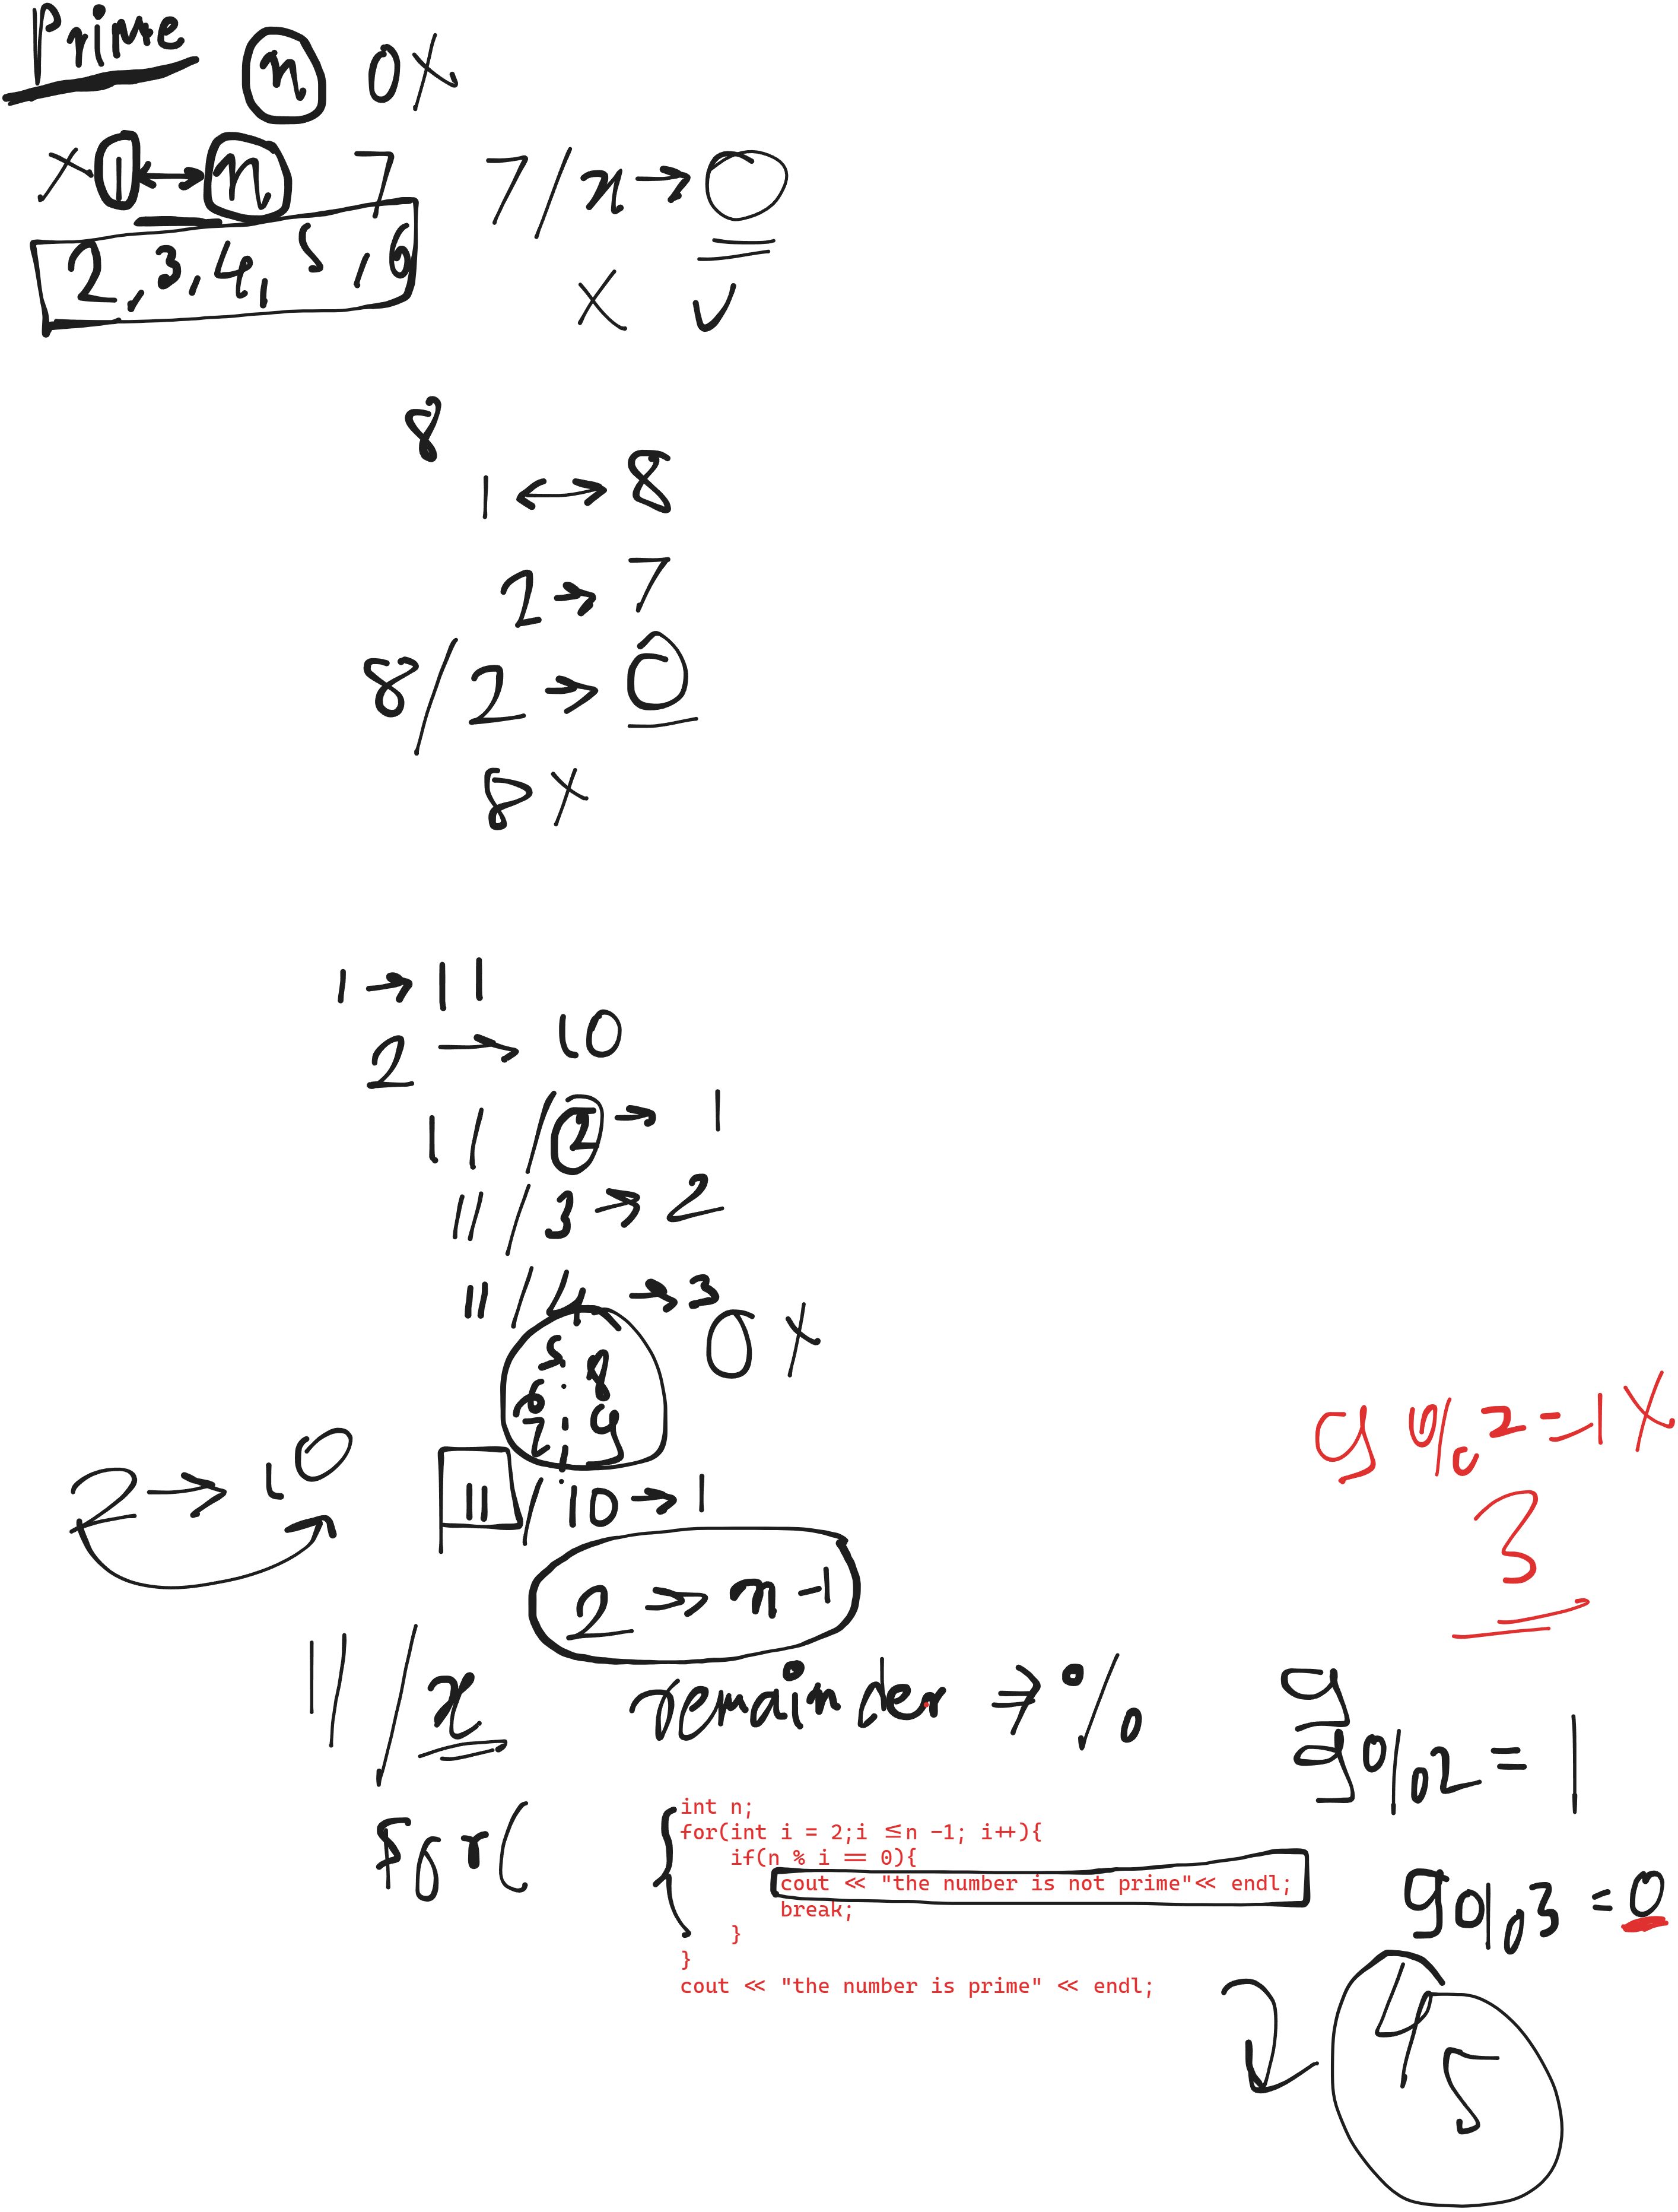 Prime
n 0 x
x 1 ↔ n 7 7/x → 0
2, 3, 4, 5, 6
x ✓
8
1 ↔ 8
2 → 7
8/2 → 0
8 x
1 → 11
2 → 10
11/2 → 1
11/3 → 2
11/4 → 3
0 x
5 8
6 9
7
9 % 2 = 1 x
2 → 10
11/10 → 1
3
2 → n - 1
11/x
remainder → %
9
9 % 2 = 1
for(
int n;
for(int i = 2;i ≤n -1; i++){
if(n % i == 0){
cout << "the number is not prime"<< endl;
break;
}
}
cout << "the number is prime" << endl;
9 % 3 = 0
2 4
5